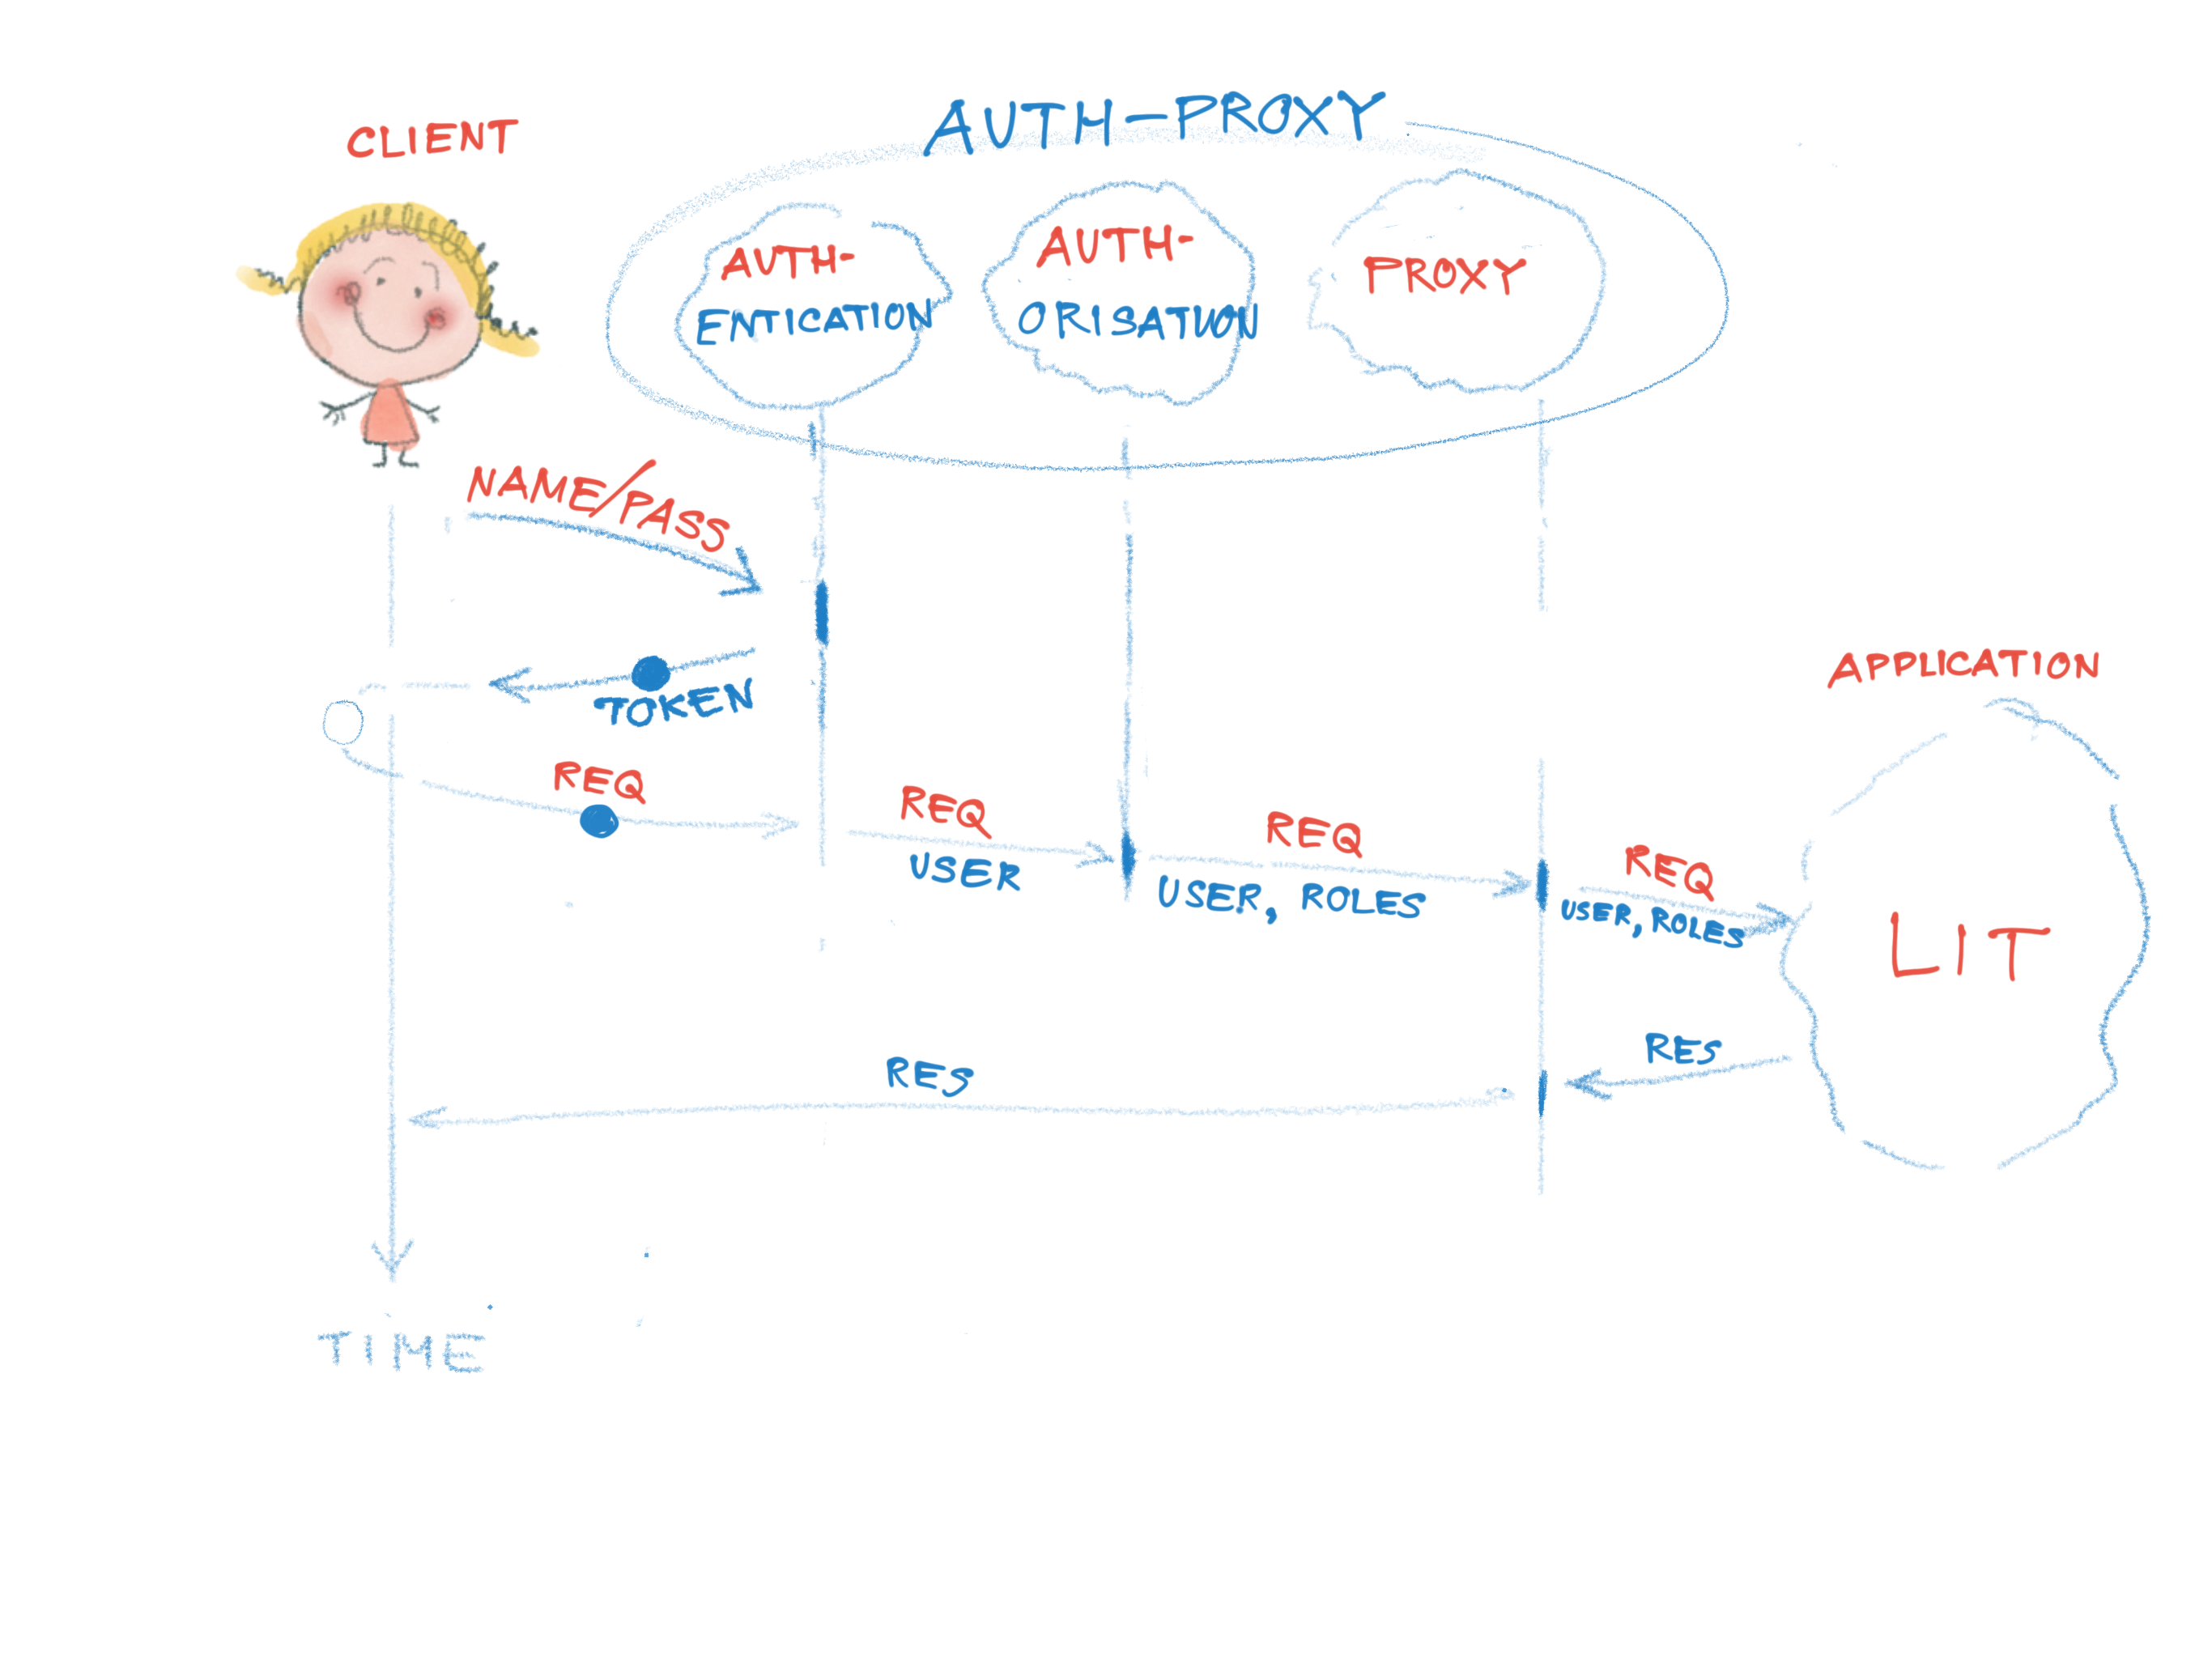 AUTH-PROXY
CLIENT
AUTH-
ENTICATION
AUTH-
ORISATION
PROXY
NAME/PASS
TOKEN
APPLICATION
REQ
REQ
USER
REQ
USER, ROLES
REQ
USER, ROLES
LIT
RES
RES
TIME